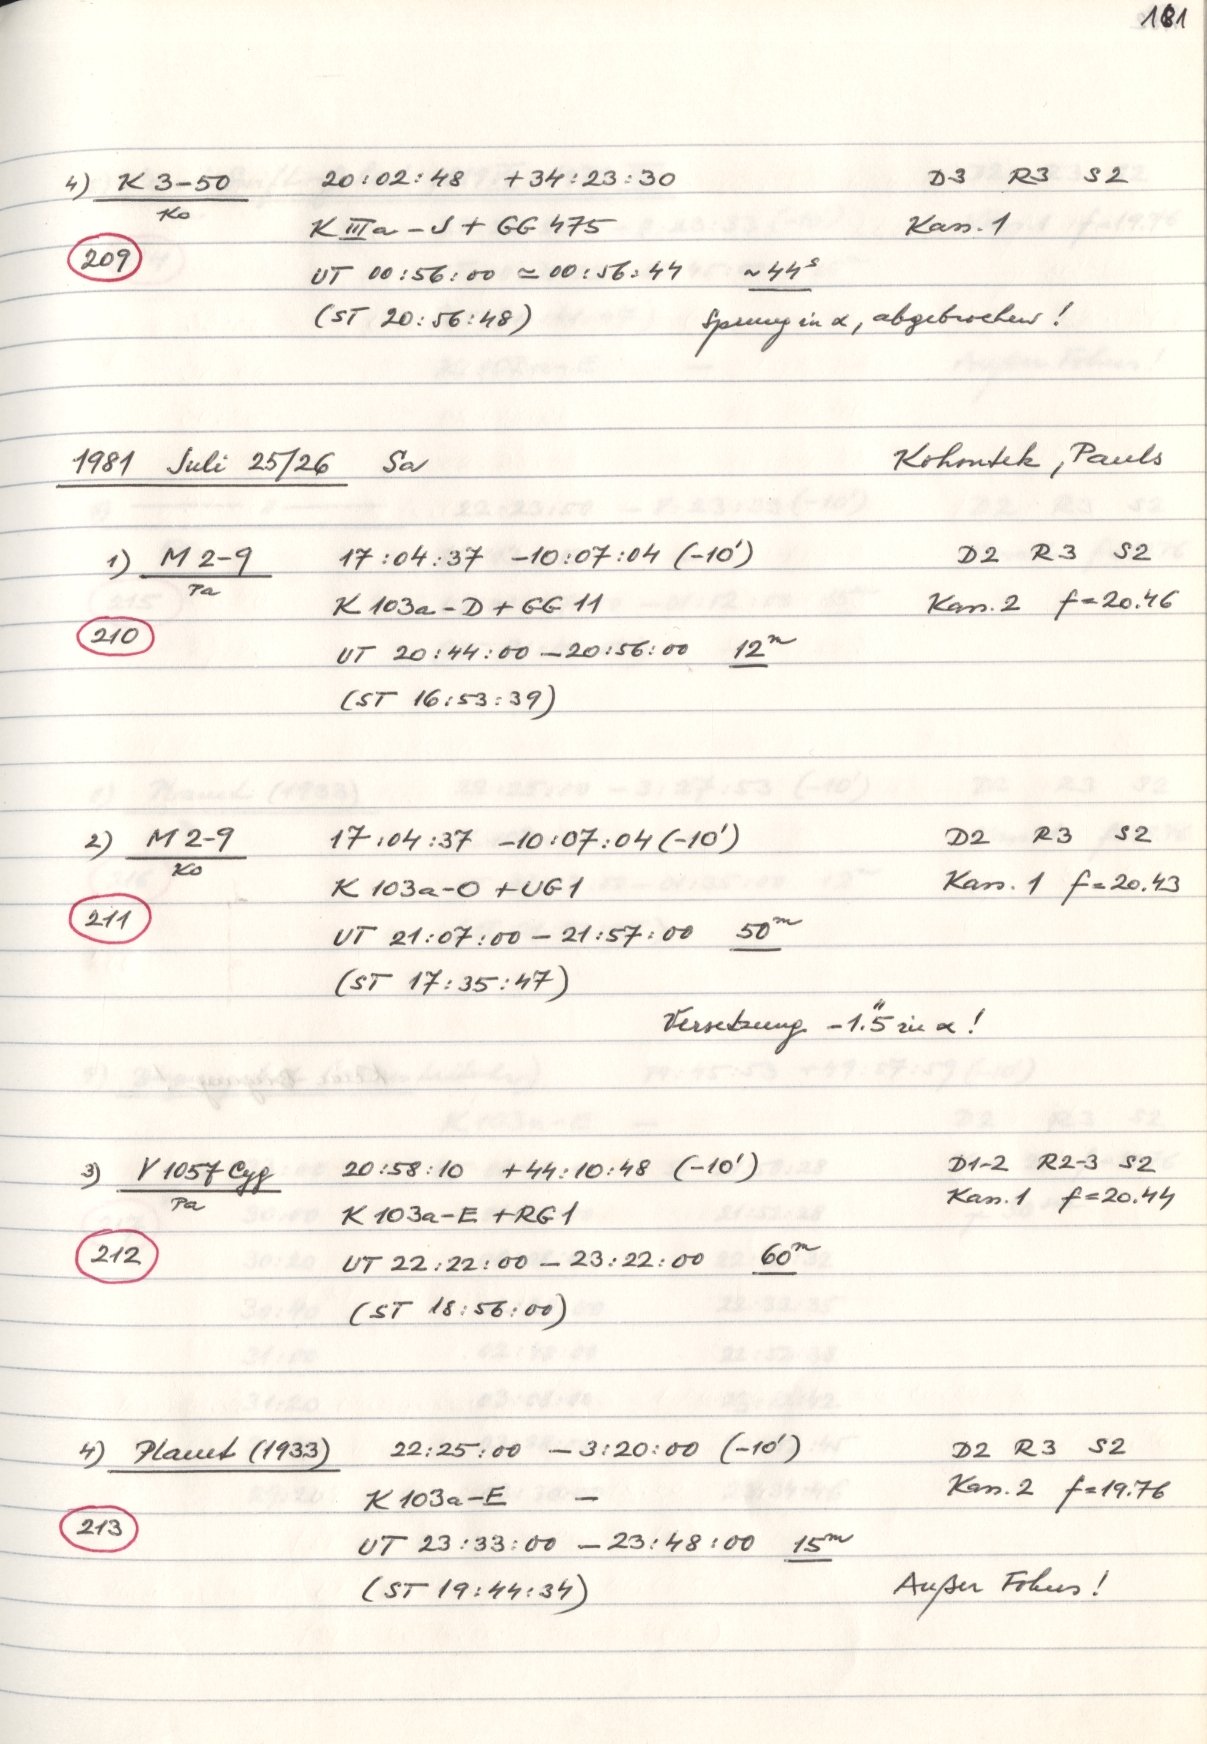 181
4) K 3-50 20:02:48 +34:23:30 D3 R3 S2
Ko K IIIa-J + GG 475 Kass. 1
209 UT 00:56:00 ≃ 00:56:44 ~44s
(ST 20:56:48) Sprung in α, abgebrochen!
1981 Juli 25/26 Sa Kohoutek, Pauls
1) M 2-9 17:04:37 -10:07:04 (-10') D2 R3 S2
Pa K 103a-D + GG 11 Kass. 2 f=20.46
210 UT 20:44:00 - 20:56:00 12m
(ST 16:53:39)
2) M 2-9 17:04:37 -10:07:04 (-10') D2 R3 S2
Ko K 103a-O + UG1 Kass. 1 f=20.43
211 UT 21:07:00 - 21:57:00 50m
(ST 17:35:47)
Versetzung -1."5 in α!
3) V 1057 Cyg 20:58:10 +44:10:48 (-10') D1-2 R2-3 S2
Pa K 103a-E + RG1 Kass. 1 f=20.44
212 UT 22:22:00 - 23:22:00 60m
(ST 18:56:00)
4) Planet (1933) 22:25:00 -3:20:00 (-10') D2 R3 S2
K 103a-E — Kass. 2 f=19.76
213 UT 23:33:00 - 23:48:00 15m
(ST 19:44:34) Außer Fokus!